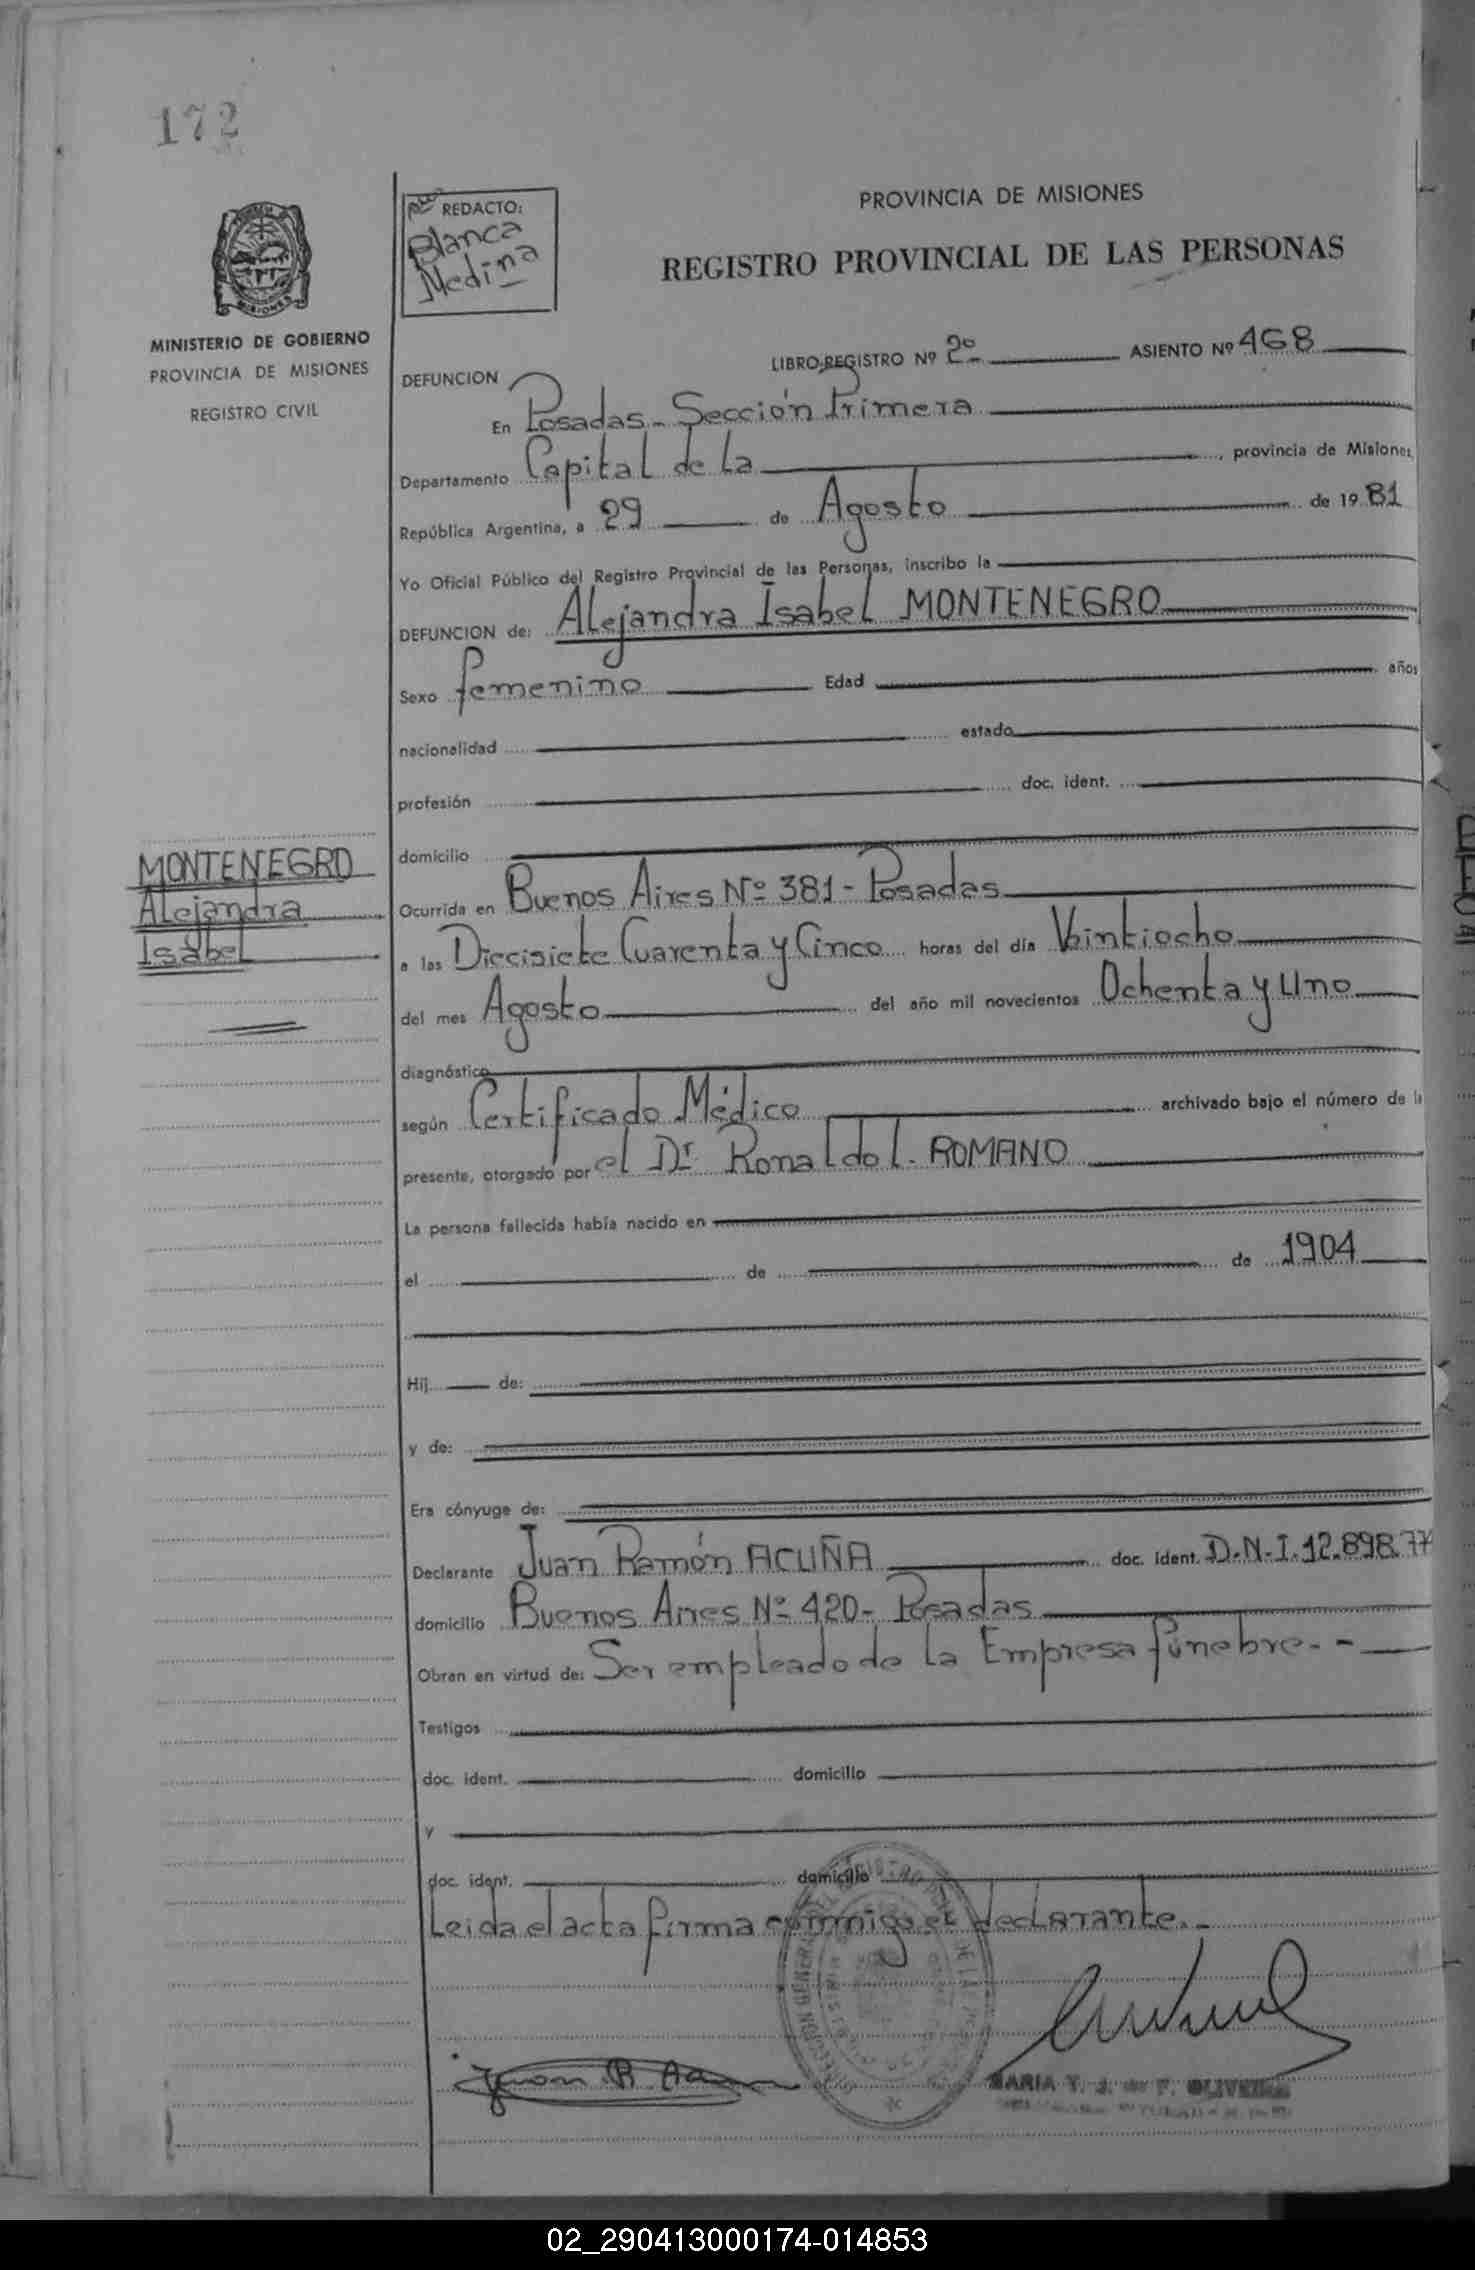 172
REDACTO:
Blanca
Medina
PROVINCIA DE MISIONES
REGISTRO PROVINCIAL DE LAS PERSONAS
MINISTERIO DE GOBIERNO
PROVINCIA DE MISIONES
REGISTRO CIVIL
LIBRO-REGISTRO Nº 2º ASIENTO Nº 468
DEFUNCION
En Posadas - Sección Primera
Departamento Capital de La, provincia de Misiones,
República Argentina, a 29 de Agosto de 1981
Yo Oficial Público del Registro Provincial de las Personas, inscribo la
DEFUNCION de: Alejandra Isabel MONTENEGRO
Sexo femenino Edad años
nacionalidad estado
profesión doc. ident.
domicilio
MONTENEGRO
Alejandra
Isabel
Ocurrida en Buenos Aires Nº 381 - Posadas
a las Diecisiete Cuarenta y Cinco horas del día Veintiocho
del mes Agosto del año mil novecientos Ochenta y Uno
diagnóstico
según Certificado Médico archivado bajo el número de la
presente, otorgado por el Dr. Ronaldo L. ROMANO
La persona fallecida había nacido en
el de de 1904
Hij de:
y de:
Era cónyuge de:
Declarante Juan Ramón ACUÑA doc. ident. D.N.I. 12.898.77
domicilio Buenos Aires Nº 420 - Posadas
Obran en virtud de: Ser empleado de la Empresa fúnebre. -
Testigos
doc. ident. domicilio
y
doc. ident. domicilio
Leida el acta firma conmigo el declarante. -
Juan R. Acuña
MARIA T. J. de F. OLIVEIRA
02_290413000174-014853